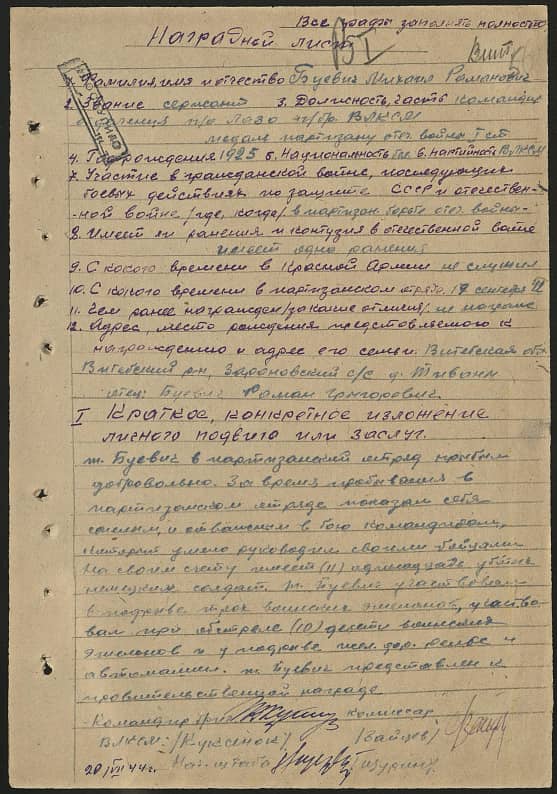 Все графы заполнять полностью
Наградной лист
Витеб
1. Фамилия, имя и отчество Буевич Михаил Романович
2. Звание сержант 3. Должность, часть командир
отделения п/о Лазо п/бр. ВЛКСМ
медаль партизану отеч. войны I ст
4. Год рождения 1925 5. Национальность бел. 6. Партийность ВЛКСМ
7. Участие в гражданской войне, последующих
боевых действиях по защите СССР и отечествен-
-ной войне /где, когда/ в партизан. борьбе отеч. войны-
8. Имеет ли ранения и контузия в отечественной войне
имеет одно ранение
9. С какого времени в Красной Армии не служил
10. С какого времени в партизанском отряде 17 сентября 42
11. Чем ранее награжден /за какие отличия/. не награжд
12. Адрес, место рождения представляемого к
награждению и адрес его семьи. Витебская обл
Витебский р-н, Зароновский с/с д.
отец: Буевич Роман Григорович.
I Краткое, конкретное изложение
личного подвига или заслуг.
т. Буевич в партизанский отряд прибыл
добровольно. За время пребывания в
партизанском отряде показал себя
смелым, и отважным в бою командиром,
умело руководил своими бойцами
На своем счету имеет (11) одинадцать убитых
немецких солдат. т. Буевич участвовал
в подрыве трёх воинских эшелонов, участво
вал при обстреле (10) десяти воинских
эшелонов и у подрыве жел. дор. рельс и
автомашин. т. Буевич представлен к
правительственной награде
Командир п/бр комиссар
ВЛКСМ /Куксёнок/ /Зайцев/
20/VII 44 г. Нач. штаба